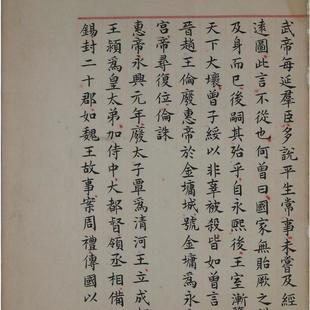 武帝每延羣臣多說平生常事未嘗及經
遠圖此言不從也何曾曰國家無貽厥之
及身而已後嗣其殆乎自永熙後王室漸
天下大壞曾子綏以非辜被殺皆如曾言
晉趙王倫廢惠帝於金墉城號金墉爲永
宮帝尋復位倫誅
惠帝永興元年廢太子覃爲清河王立成
王穎爲皇太弟加侍中大都督領丞相備
錫封二十郡如魏王故事案周禮傳國以